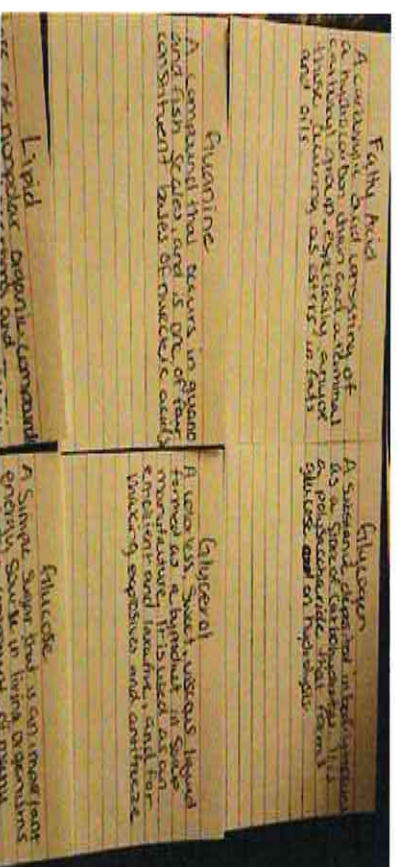 Fatty Acid
A carboxylic acid consisting of
a hydrocarbon chain and a terminal
carboxyl group, especially any of
those occurring as esters in fats
and oils.
Glycogen
A substance deposited in bodily tissues
as a store of carbohydrates. It is
a polysaccharide that forms
glucose and on hydrolysis.
Guanine
A compound that occurs in guano
and fish scales, and is one of four
constituent bases of nucleic acids
Glycerol
A colorless, sweet, viscous liquid
formed as a byproduct in soap
manufacture. It is used as an
emollient and laxative, and for
making explosives and antifreeze
Lipid
of nonpolar organic compounds
and
Glucose
A simple sugar that is an important
energy source in living organisms
component of many